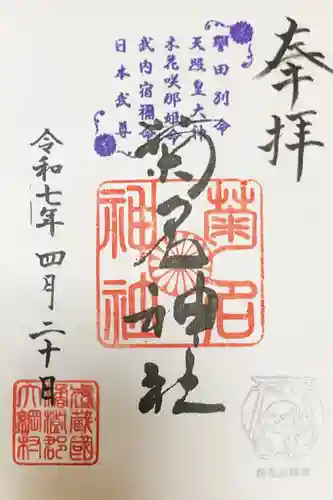 奉拝
誉田別命
天照皇大神
木花咲耶姫命
武内宿禰命
日本武尊
菊名神社
菊名神社
令和七年 四月二十日
武蔵國
橘樹郡
大綱村